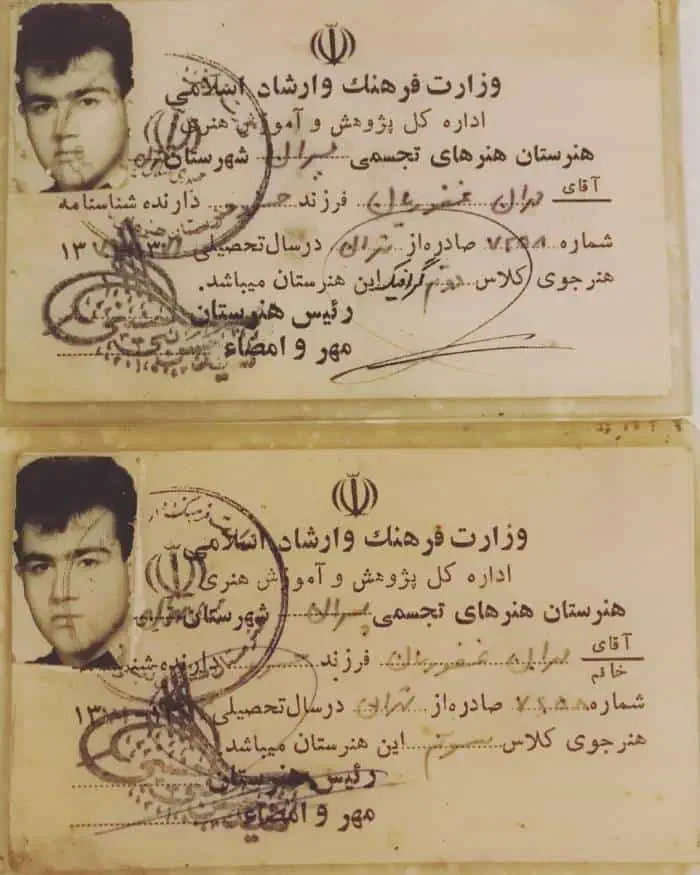 وزارت فرهنگ وارشاد اسلامی
اداره کل پژوهش و آموزش هنری
هنرستان هنرهای تجسمی پسران شهرستان تهران
آقای مهران غفوریان فرزند دارنده شناسنامه
شماره ۷۲۵۸ صادره‌از تهران درسال‌تحصیلی ۱۳
هنرجوی کلاس دوم گرافیک این هنرستان میباشد.
رئیس هنرستان
مهر و امضاء
وزارت فرهنگ وارشاد اسلامی
اداره کل پژوهش و آموزش هنری
هنرستان هنرهای تجسمی پسران شهرستان
آقای
خانم
مهران غفوریان فرزند دارنده
شماره ۷۲۵۸ صادره‌از تهران درسال‌تحصیلی ۱۳
هنرجوی کلاس سوم این هنرستان میباشد.
رئیس هنرستان
مهر و امضاء